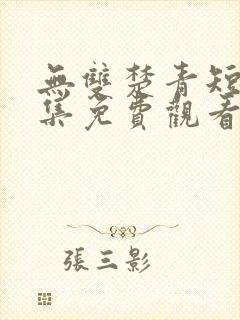 無雙楚青短
集免費觀看
張三影